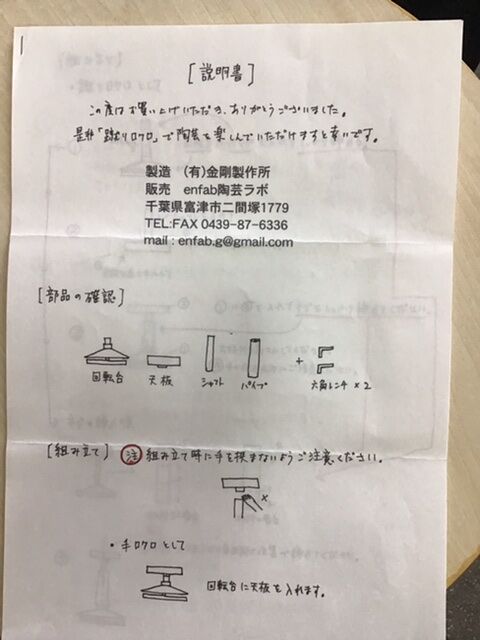 [説明書]
この度はお買い上げいただき、ありがとうございました。
是非「蹴りロクロ」で陶芸を楽しんでいただけますと幸いです。
製造 (有)金剛製作所
販売 enfab陶芸ラボ
千葉県富津市二間塚1779
TEL:FAX 0439-87-6336
mail : enfab.g@gmail.com
[部品の確認]
+
回転台 天板 シャフト パイプ 六角レンチ×2
[組み立て] 注 組み立て時に手を挟まないようご注意ください。
×
・手ロクロとして
回転台に天板を入れます。